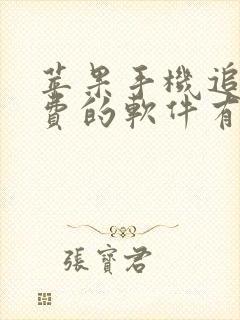 苹果手機追
費的軟件有
張寶君